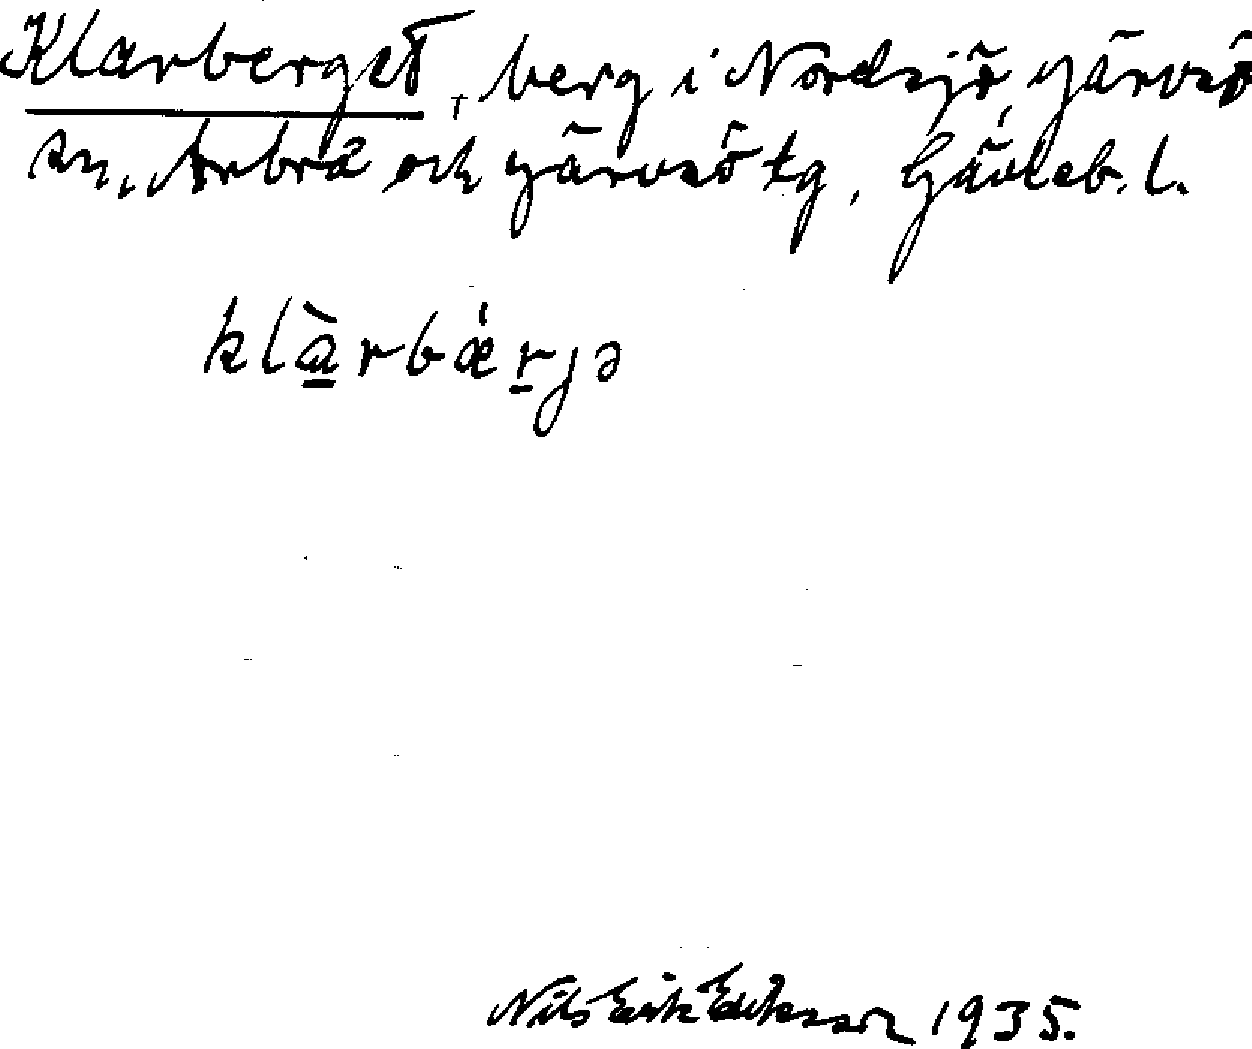 Klarberget, berg i Nordsjö, Järvsö
sn, Arbrå och Järvsö tg, Gävleb. l.
klàrbǽrjə
Nils Erik Eriksson 1935.